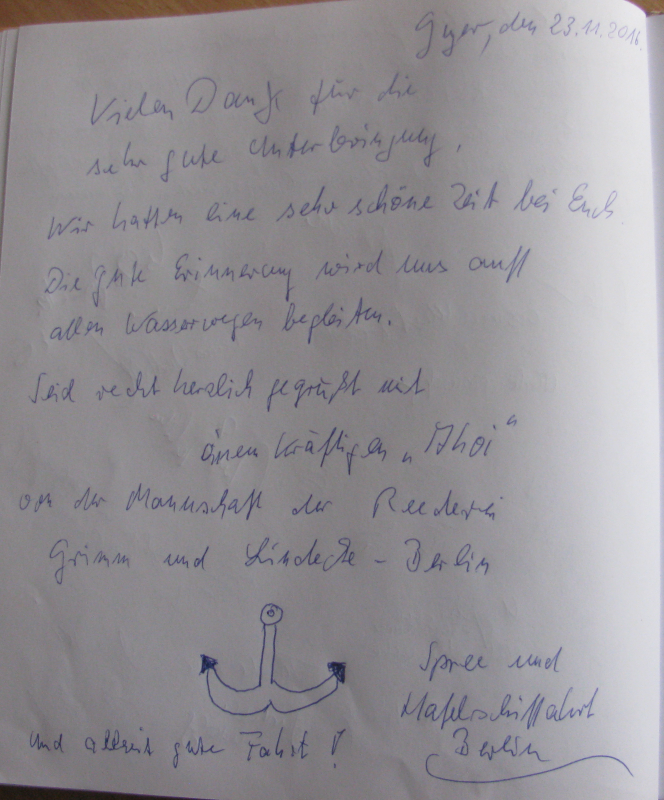 Gyer, den 23.11.2016.
Vielen Dank für die
sehr gute Unterbringung.
Wir hatten eine sehr schöne Zeit bei Euch.
Die gute Erinnerung wird uns auff
allen Wasserwegen begleiten.
Seid recht herzlich gegrüßt mit
einem kräftigen „Ahoi“
von der Mannschaft der Reederei
Grimm und Lindecke – Berlin
Spree und
Havelschiffahrt
Berlin
und allzeit gute Fahrt!